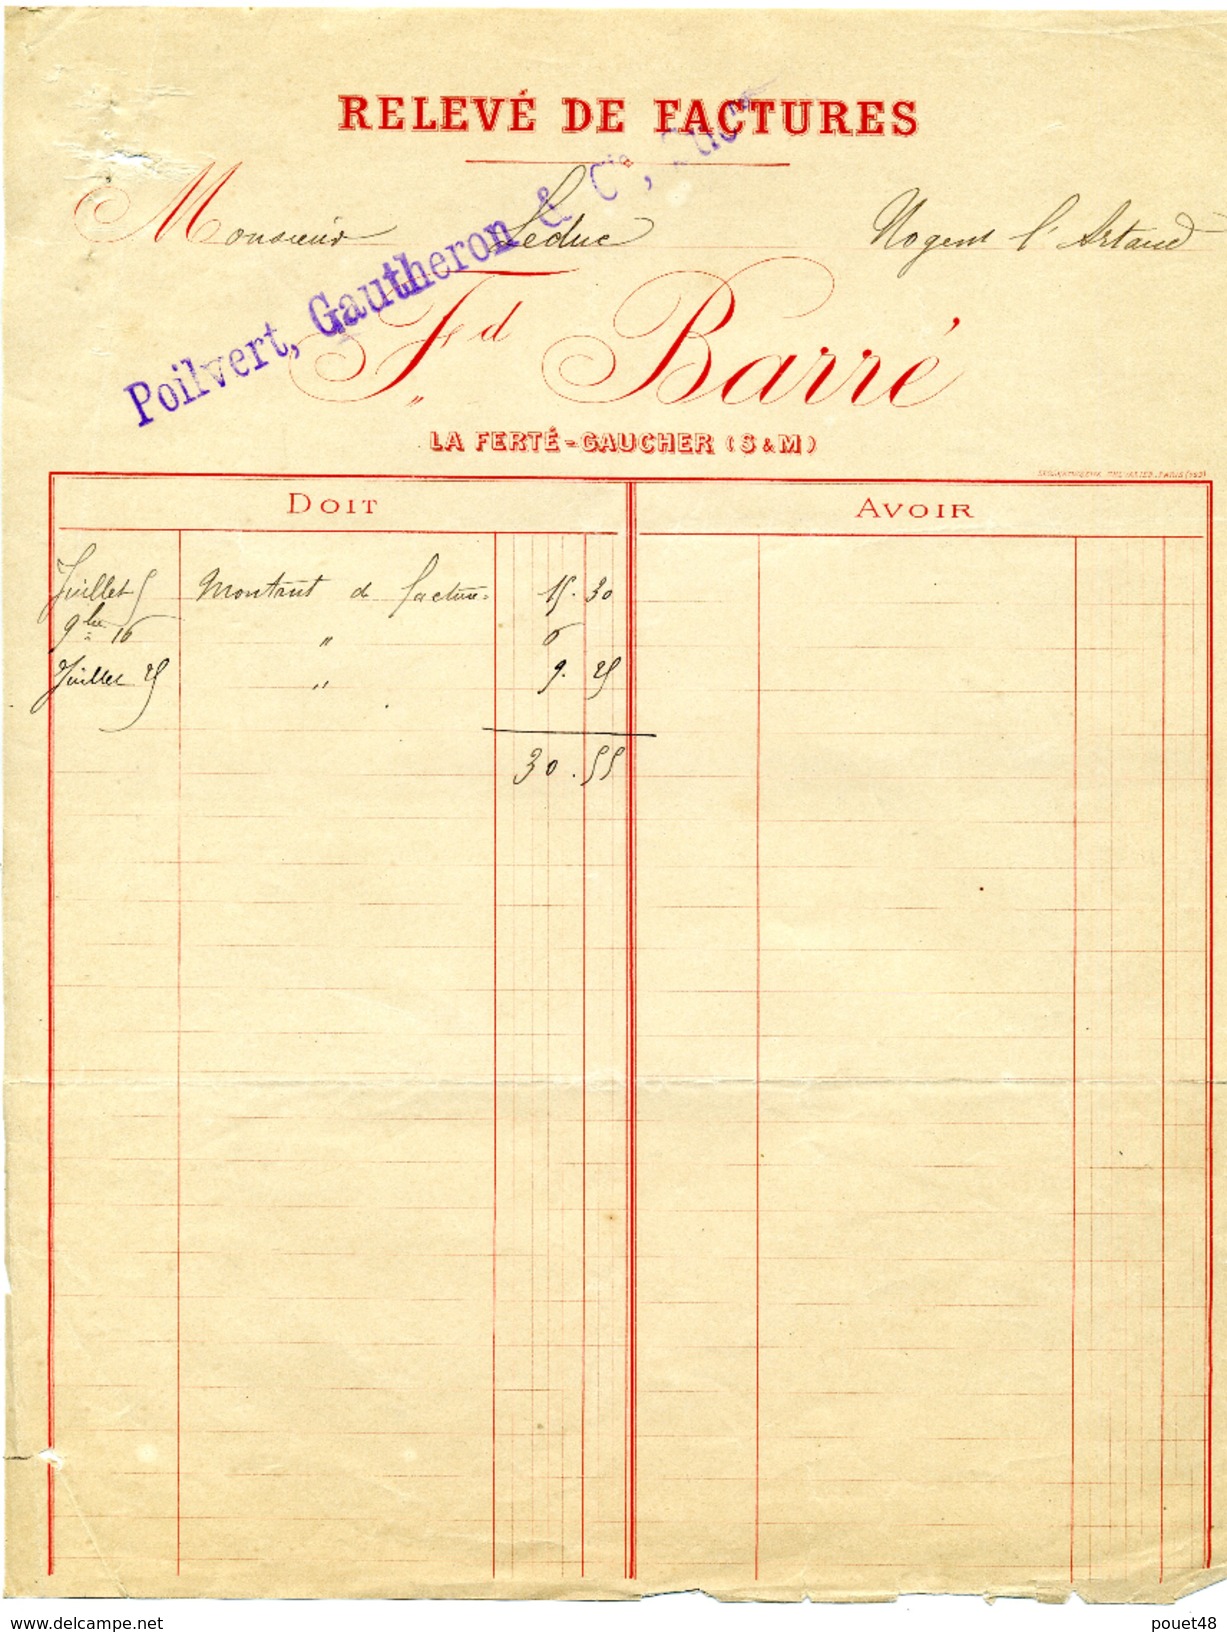 RELEVÉ DE FACTURES
Monsieur Leduc Nogent l'Artaud
Poilvert, Gautheron & Cie,
Fd Barré
LA FERTÉ-GAUCHER (S & M)
DOIT AVOIR
Juillet 5 Montant de facture 15.30
9bre 16 " 6
Juillet 25 " 9.25
30.55
www.delcampe.net pouet48